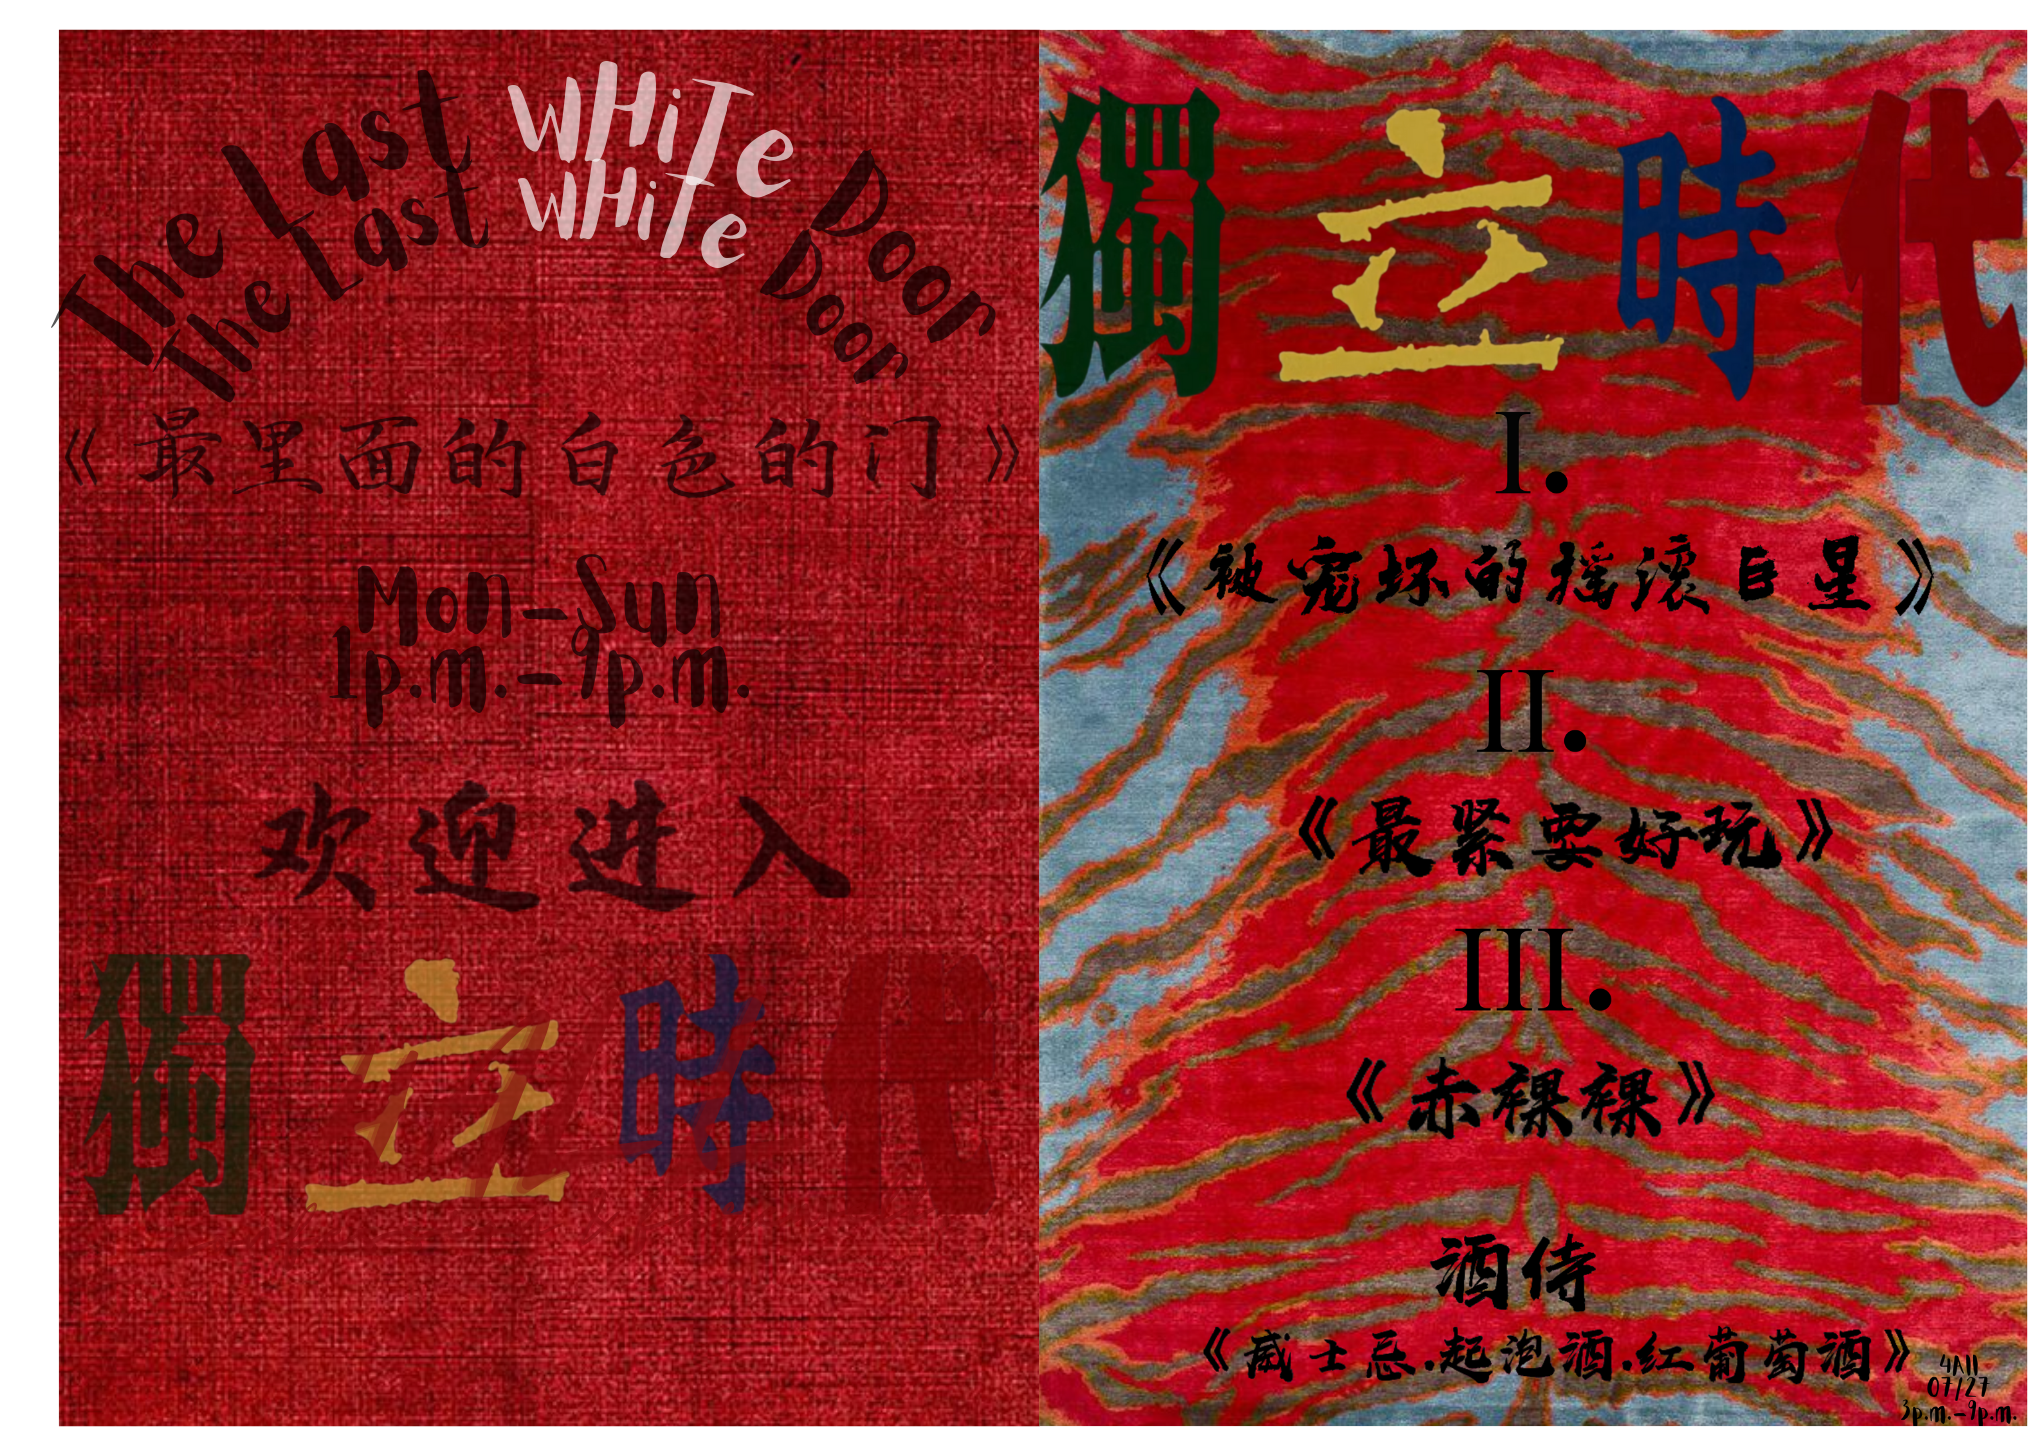 The Last WHiTe Door
The Last WHiTe Door
《最里面的白色的门》
Mon-Sun
1p.m.-9p.m.
欢迎进入
獨立時代
獨立時代
I.
《被宠坏的摇滚巨星》
II.
《最紧要好玩》
III.
《赤裸裸》
酒侍
《威士忌.起泡酒.红葡萄酒》
4All
07/27
3p.m.-9p.m.